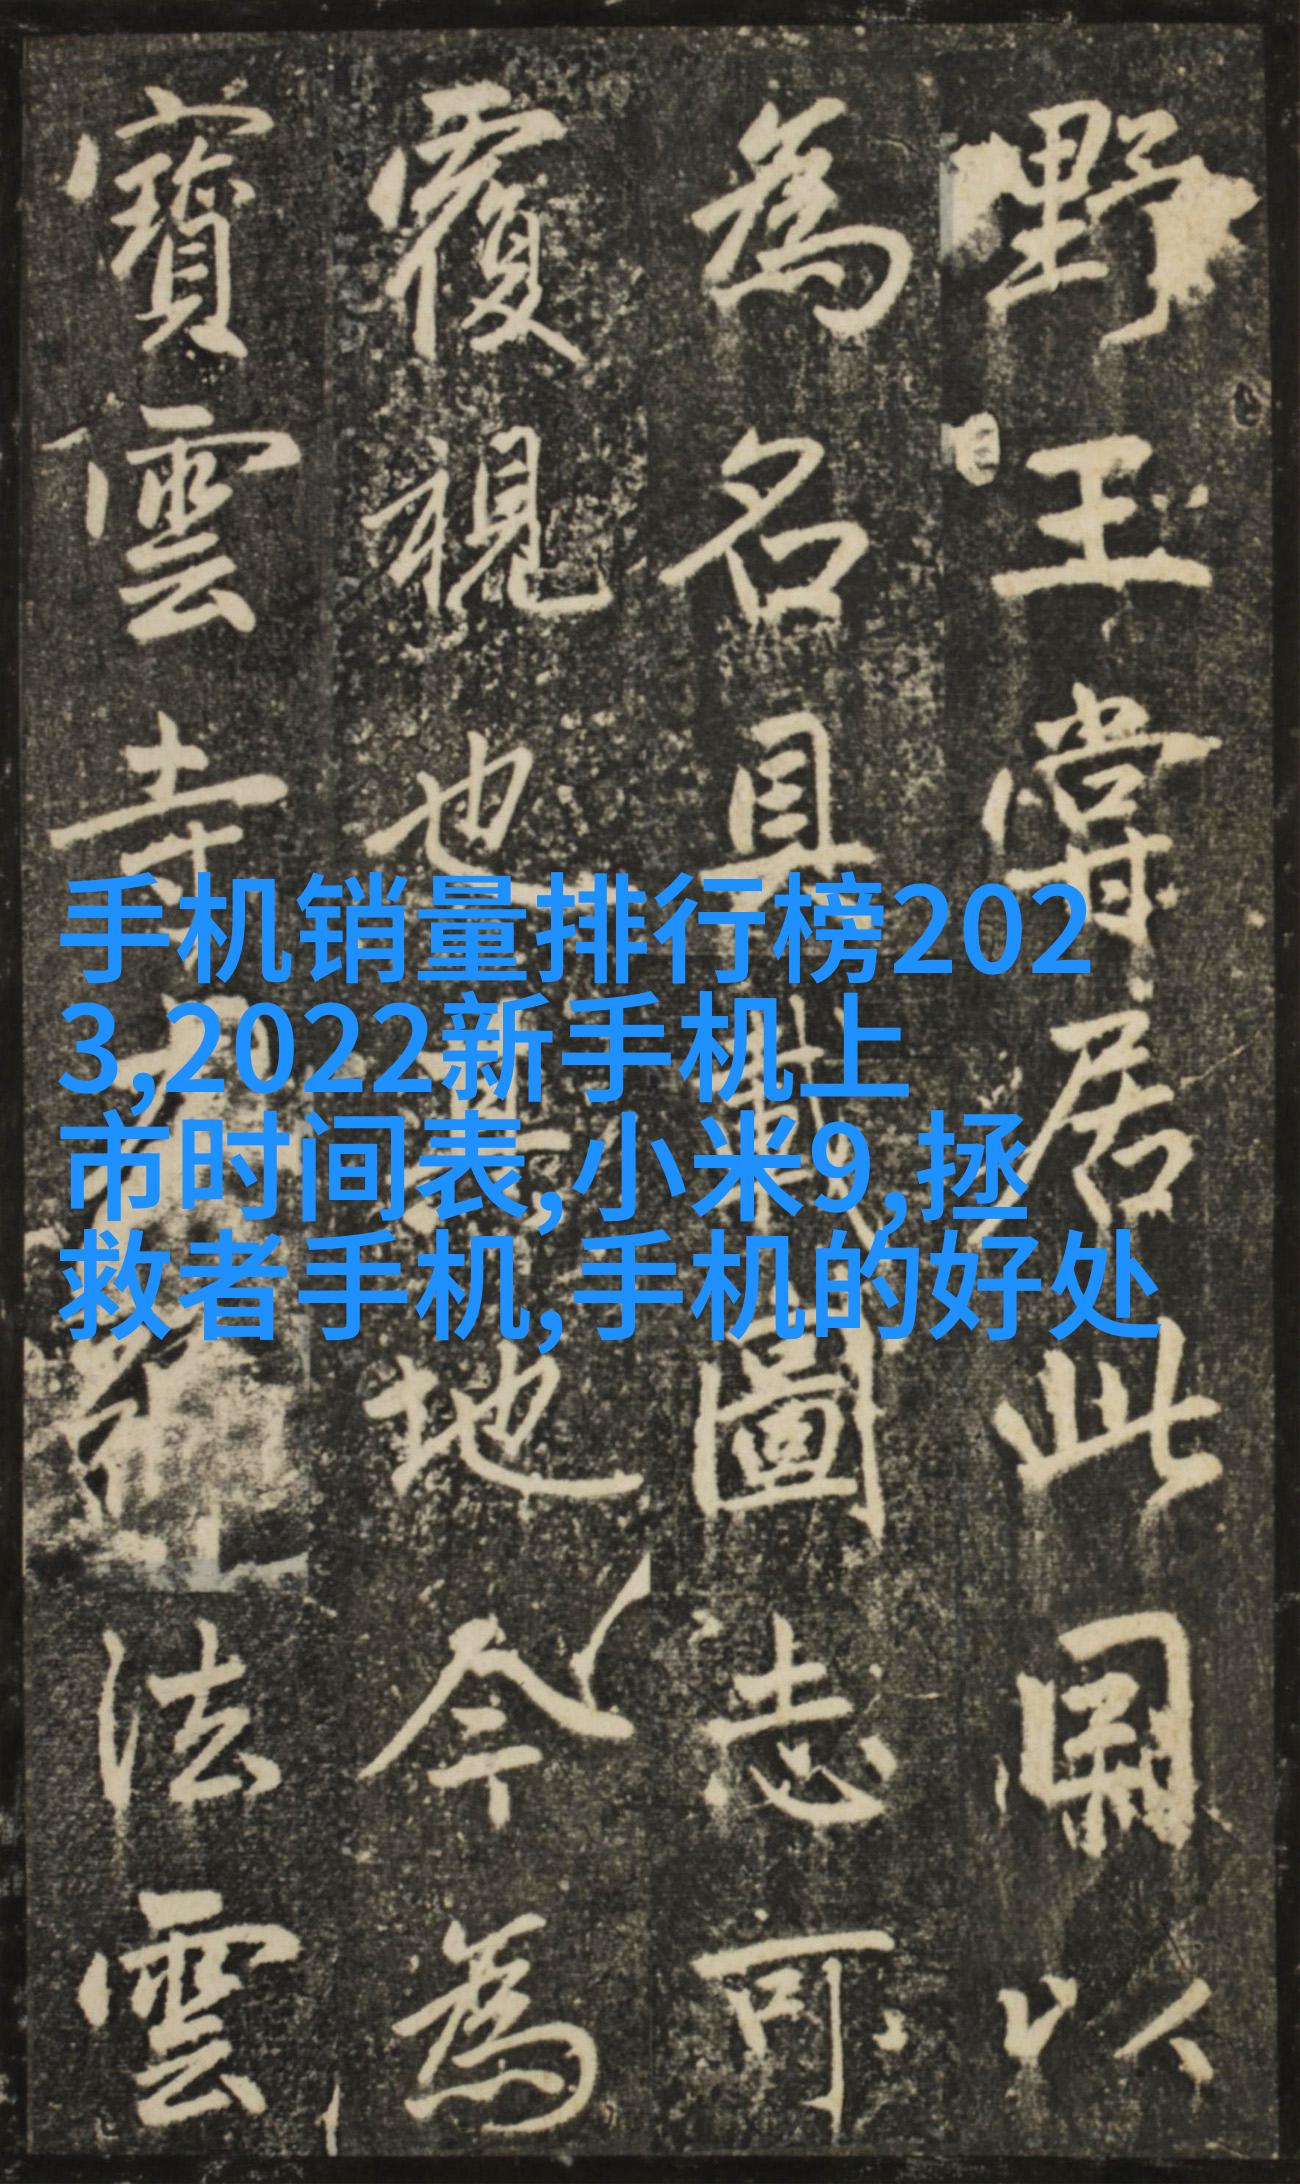 野王嘗居此因以
為名具載圖志可
覆視也其地今為
寶雲寺
法雲
手机销量排行榜202
3,2022新手机上
市时间表,小米9,拯
救者手机,手机的好处